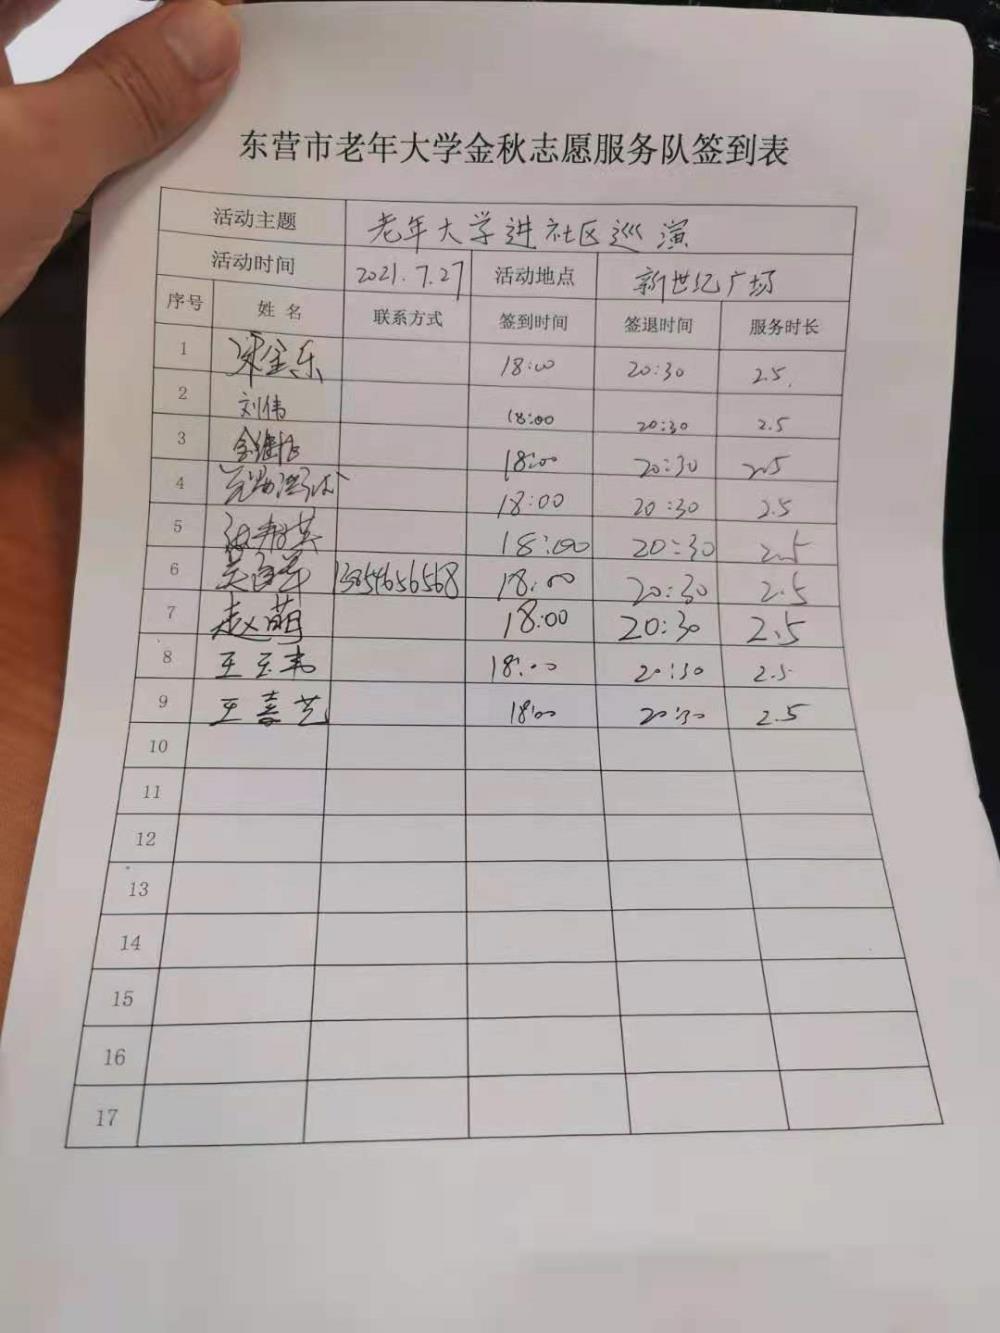 东营市老年大学金秋志愿服务队签到表
活动主题 老年大学进社区巡演
活动时间 2021.7.27 活动地点 新世纪广场
序号 姓名 联系方式 签到时间 签退时间 服务时长
1 金东 18:00 20:30 2.5
2 刘伟 18:00 20:30 2.5
3 18:00 20:30 2.5
4 18:00 20:30 2.5
5 18:00 20:30 2.5
6 13854656568 18:00 20:30 2.5
7 赵萌 18:00 20:30 2.5
8 王玉韦 18:00 20:30 2.5
9 王嘉艺 18:00 20:30 2.5
10
11
12
13
14
15
16
17